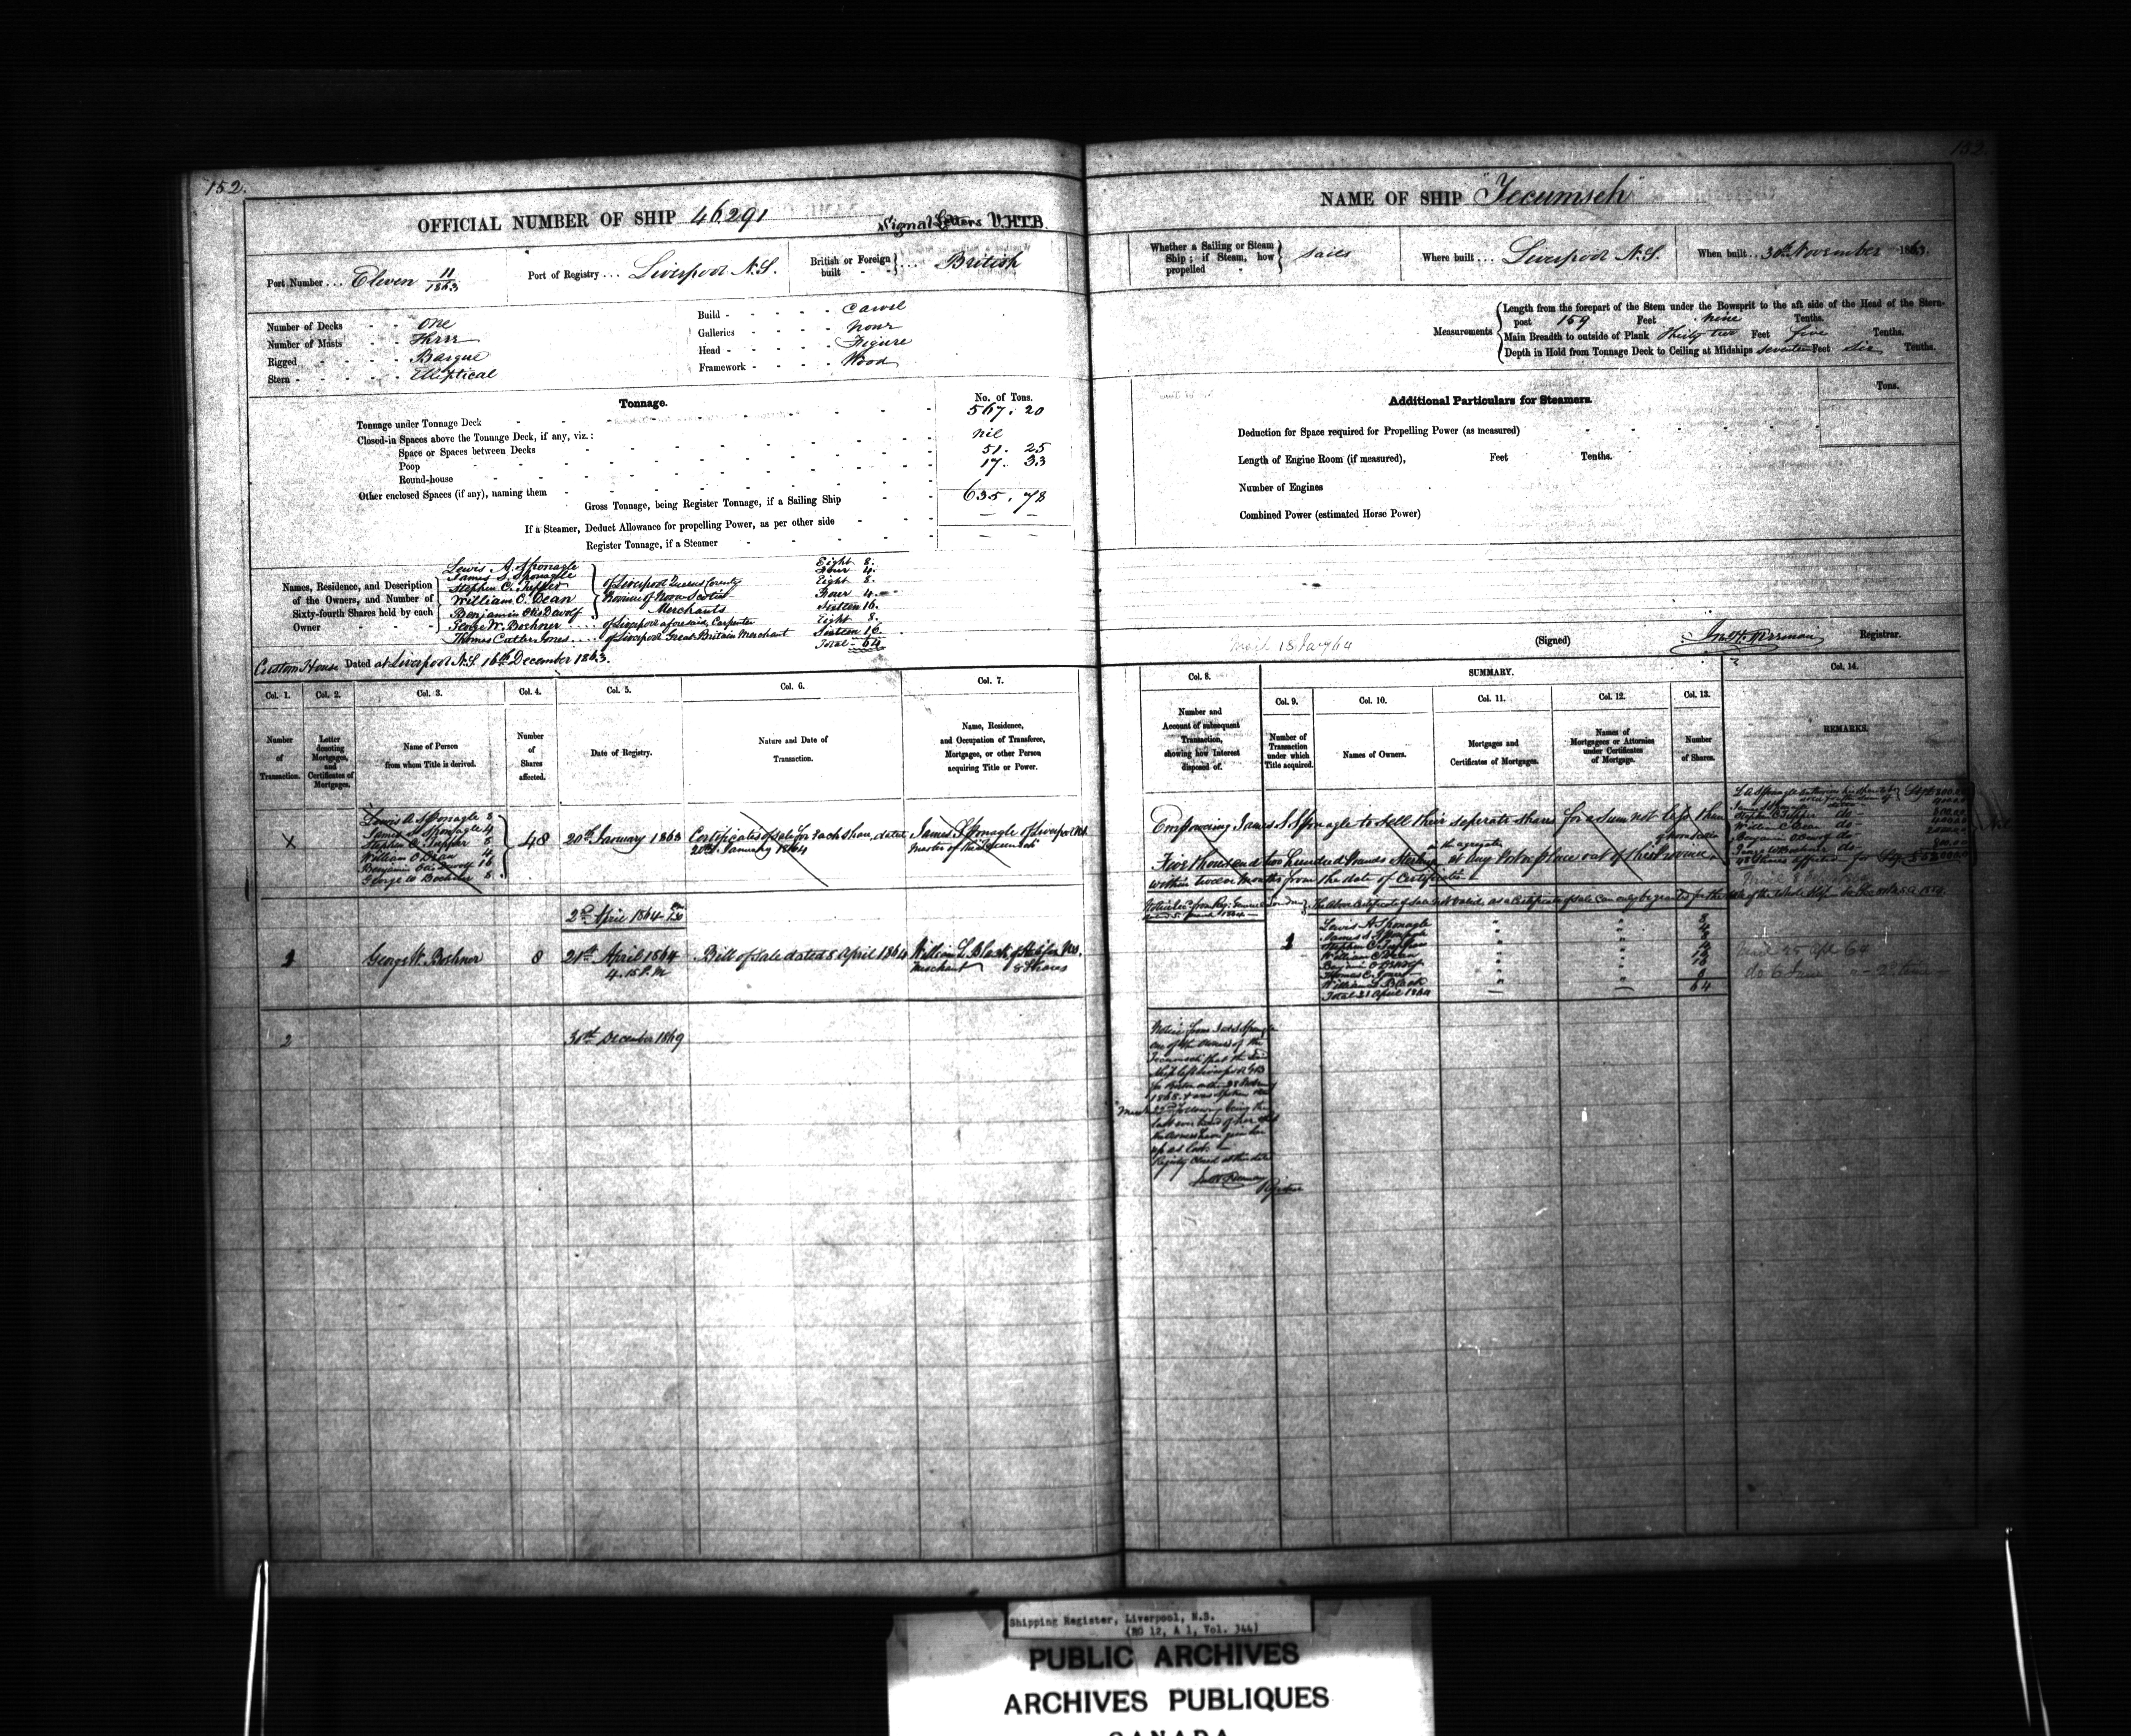 152.
152.
OFFICIAL NUMBER OF SHIP 46291
Signal Letters V.H.T.B.
NAME OF SHIP "Tecumseh"
Port Number ... Eleven 11/1863
Port of Registry ... Liverpool N.S.
British or Foreign built ... British
Whether a Sailing or Steam Ship; if Steam, how propelled } Sails
Where built ... Liverpool N.S.
When built .. 30th November 1863.
Number of Decks - - One
Number of Masts - - Three
Rigged - - - - Barque
Stern - - - - - Elliptical
Build - - - - - Carvel
Galleries - - - - None
Head - - - - - Figure
Framework - - - - Wood
Measurements
Length from the forepart of the Stem under the Bowsprit to the aft side of the Head of the Stern-
post 159 Feet nine Tenths.
Main Breadth to outside of Plank Thirty two Feet five Tenths.
Depth in Hold from Tonnage Deck to Ceiling at Midships seventeen Feet six Tenths.
Tonnage.
No. of Tons.
Tonnage under Tonnage Deck 567. 20
Closed-in Spaces above the Tonnage Deck, if any, viz.: nil
Space or Spaces between Decks
51. 25
Poop
17. 33
Round-house
Other enclosed Spaces (if any), naming them
Gross Tonnage, being Register Tonnage, if a Sailing Ship 635. 78
If a Steamer, Deduct Allowance for propelling Power, as per other side
Register Tonnage, if a Steamer
Additional Particulars for Steamers.
Tons.
Deduction for Space required for Propelling Power (as measured)
Length of Engine Room (if measured), Feet Tenths.
Number of Engines
Combined Power (estimated Horse Power)
Names, Residence, and Description of the Owners, and Number of Sixty-fourth Shares held by each Owner
Lewis A. Sponagle Eight 8.
James S. Sponagle Four 4.
Stephen C. Tupper of Liverpool Queens County Eight 8.
William C. Dean Province of Nova Scotia Four 4.
Benjamin Otis Dewolf Merchants Sixteen 16.
George W. Boehner .... of Liverpool aforesaid, Carpenter Eight 8.
Thomas Cutler Jones .... of Liverpool Great Britain Merchant Sixteen 16.
Total - 64
Custom House Dated at Liverpool N.S. 16th December 1863.
(Signed)
Registrar.
Col. 1.
Col. 2.
Col. 3.
Col. 4.
Col. 5.
Col. 6.
Col. 7.
Col. 8.
SUMMARY.
Col. 9.
Col. 10.
Col. 11.
Col. 12.
Col. 13.
Col. 14.
Number of Transaction.
Letter denoting Mortgages, and Certificates of Mortgages.
Name of Person from whom Title is derived.
Number of Shares affected.
Date of Registry.
Nature and Date of Transaction.
Name, Residence, and Occupation of Transferee, Mortgagee, or other Person acquiring Title or Power.
Number and Account of subsequent Transaction, showing how Interest disposed of.
Number of Transaction under which Title acquired.
Names of Owners.
Mortgages and Certificates of Mortgages.
Names of Mortgagees or Attornies under Certificates of Mortgage.
Number of Shares.
REMARKS.
X
Lewis A Sponagle 8
James S Sponagle 4
Stephen C. Tupper 8
William C Dean 4
Benjamin Otis Dewolf 16
George W Boehner 8
48
20th January 1863
Certificates of sale for each share, dated
20th January 1864
James S Sponagle of Liverpool N.S.
Master of the "Tecumseh"
Empowering James S Sponagle to sell their seperate shares for a sum not less than
in the aggregate
Five thousand two hundred Pounds Sterling at any Port or place out of the Province
within twelve months from the date of Certificate
2nd April 1864
1
George W. Boehner
8
21st April 1864
4.15 P.M
Bill of Sale dated 8 April 1864
William L. Black, of Halifax N.S.
Merchant 8 Shares
1
Lewis A Sponagle 8
James S Sponagle 4
Stephen C Tupper 8
William C Dean 4
Benjamin O Dewolf 16
Thomas C. Jones 16
William L. Black 8
Total 21 April 1864 64
2
30th December 1869
Notice from Jas S Sponagle
one of the owners of the
Tecumseh that the
last ever heard of her
the owners have given her
up as lost.
Registry closed at this date
Registrar
Shipping Register, Liverpool, N.S.
(RG 12, A 1, Vol. 344)
PUBLIC ARCHIVES
ARCHIVES PUBLIQUES
CANADA